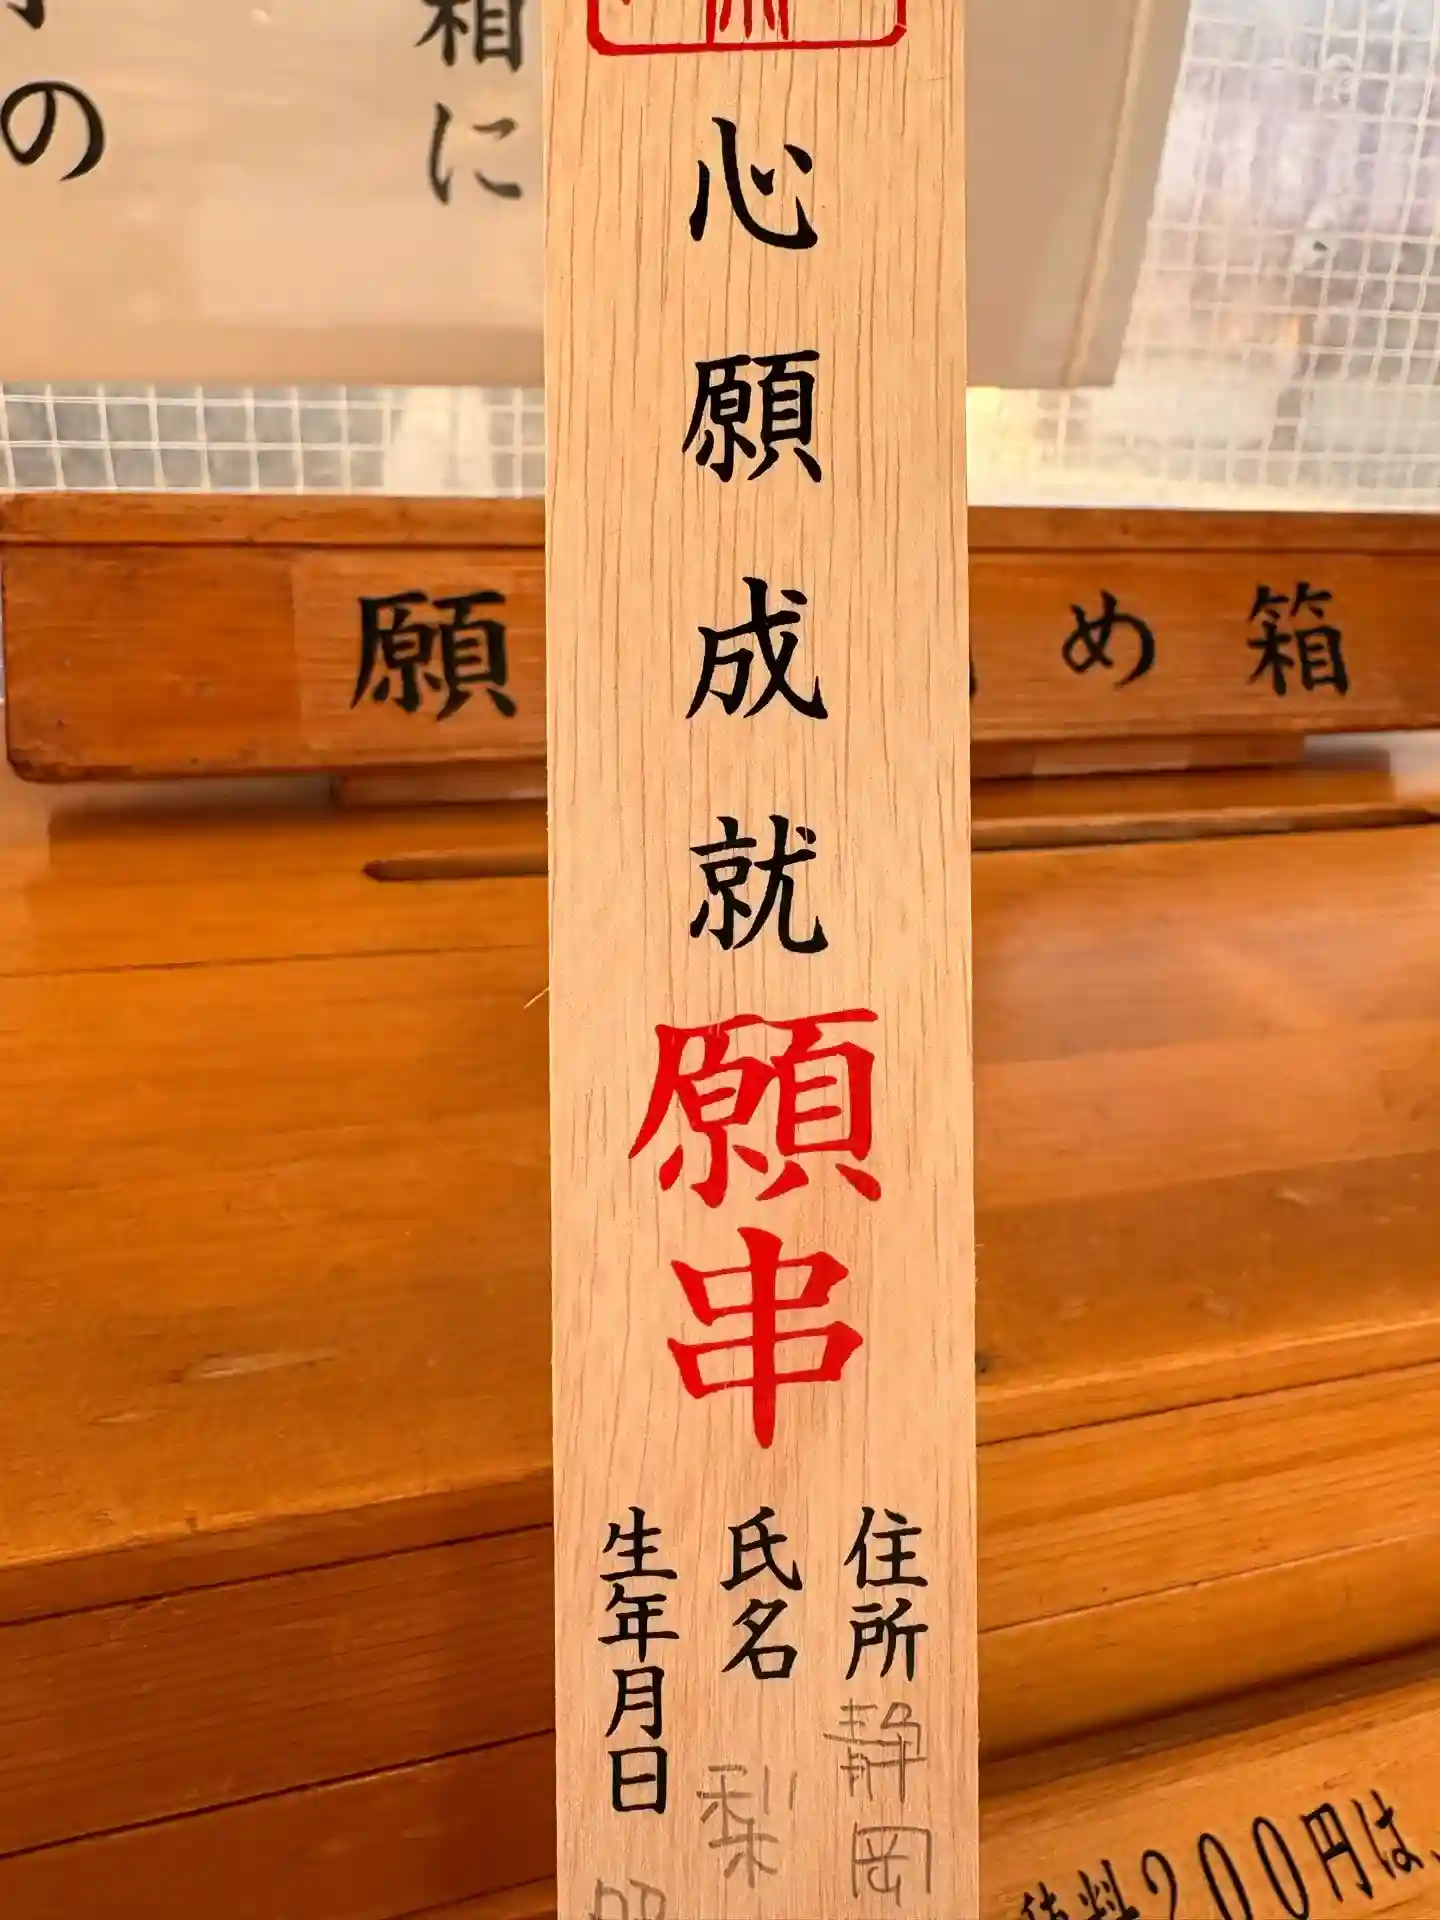 箱に
の
心願成就
願串
住所 静岡
氏名 梨
生年月日 昭
願
め箱
料200円は、